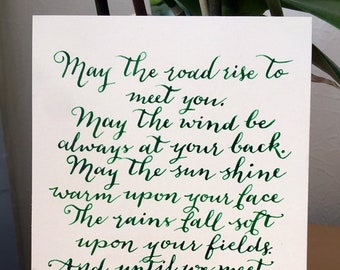 May the road rise to
meet you.
May the wind be
always at your back.
May the sun shine
warm upon your face
The rains fall soft
upon your fields.
And until we meet